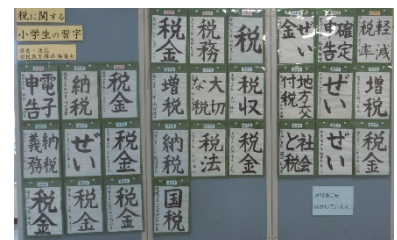 税に関する
小学生の習字
電子申告
納税
税金
納税義務
ぜい
税金
税金
税金
税金
税金
税務
税
増税
大切な税
税収
納税
税法
税金
国税
ぜい金
確定申告
軽減税率
地方交付税
ぜい
増税
社会と税
ぜい
税金